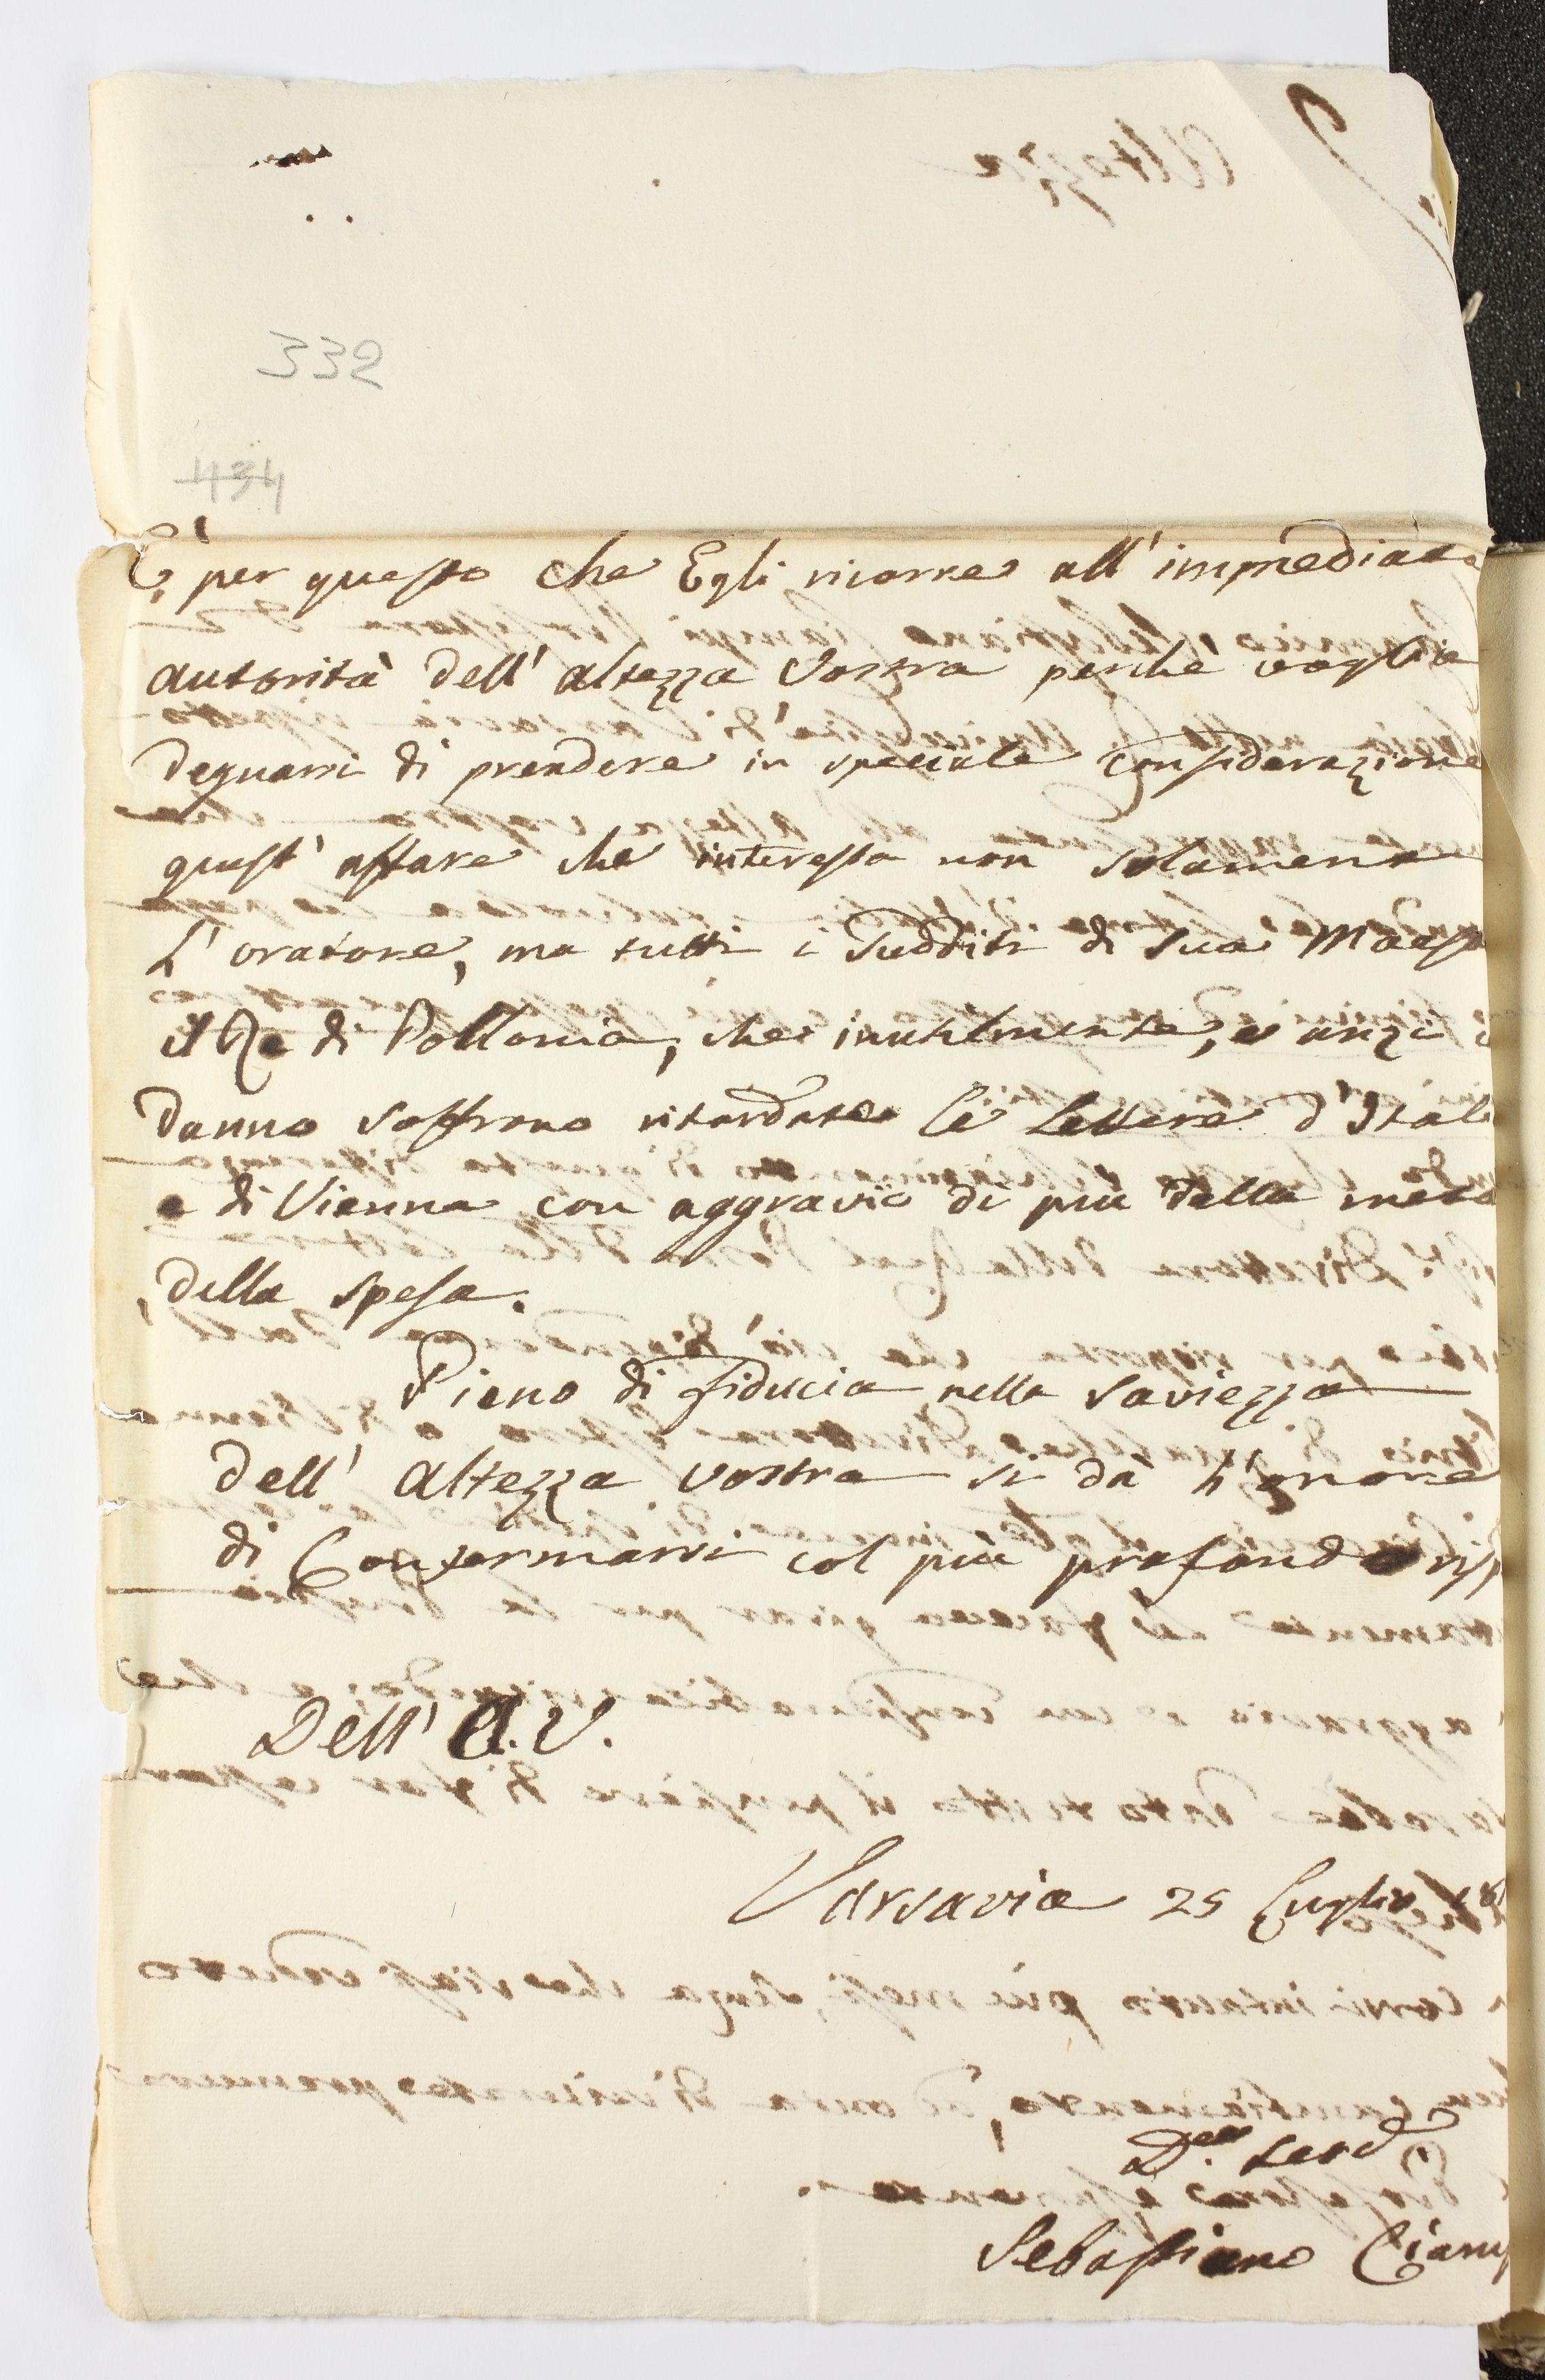 332
434
È per questo che Egli ricorre all' immediata
autorità dell' altezza Vostra perchè voglia
degnarsi di prendere in speciale Considerazione
quest' affare che interessa non solamente
L' oratore, ma tutti i Sudditi di Sua Maest
il Re di Pollonia, che inutilmente, e anzi
danno soffrono ritardate le Lettere d'Itali
e di Vienna con aggravio di più della metà
della spesa.
Pieno di fiducia nella saviezza
dell' Altezza vostra si dà L'onore
di Confermarsi col più profondo risp
Dell' A. V.
Varsavia 25 Luglio 18
Sebastiano Ciamp